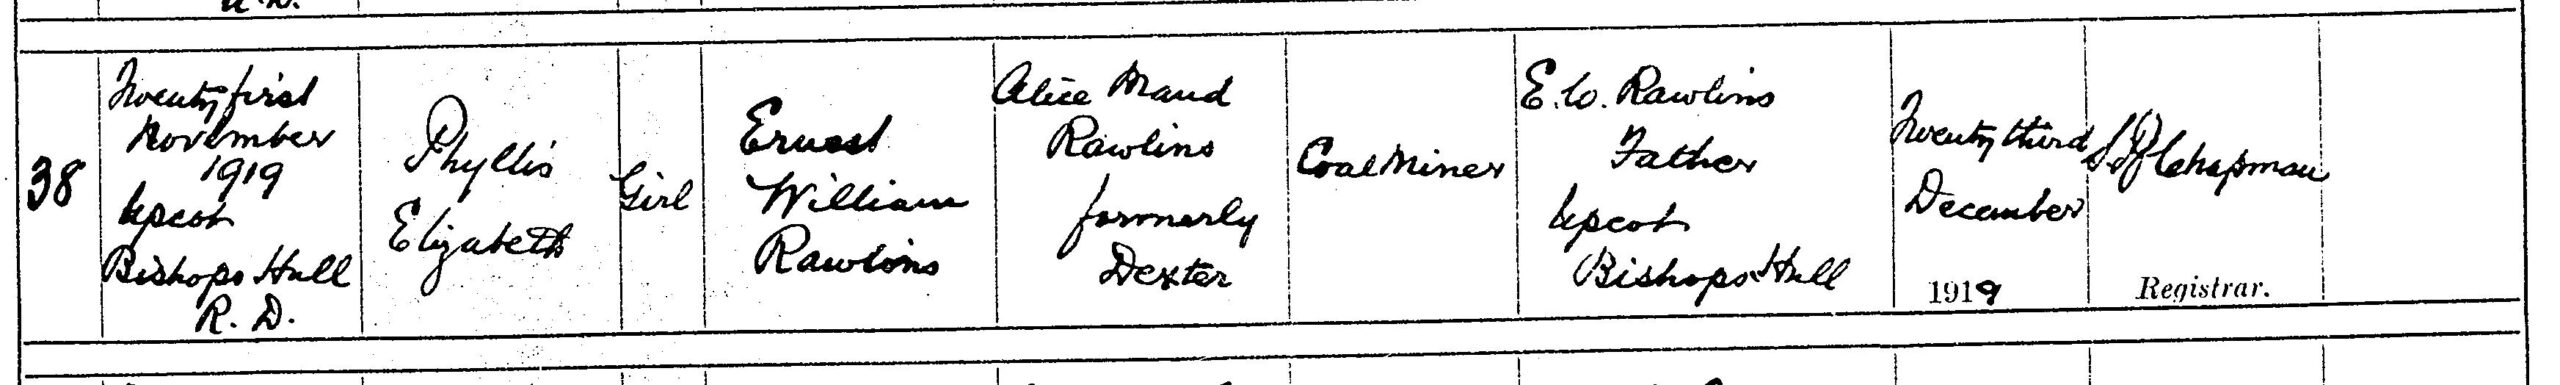 38
Twenty first
November
1919
Upcot
Bishops Hull
R. D.
Phyllis
Elizabeth
Girl
Ernest
William
Rawlins
Alice Maud
Rawlins
formerly
Dexter
Coal Miner
E. W. Rawlins
Father
Upcot
Bishops Hull
Twenty third
December
1919
Chapman
Registrar.